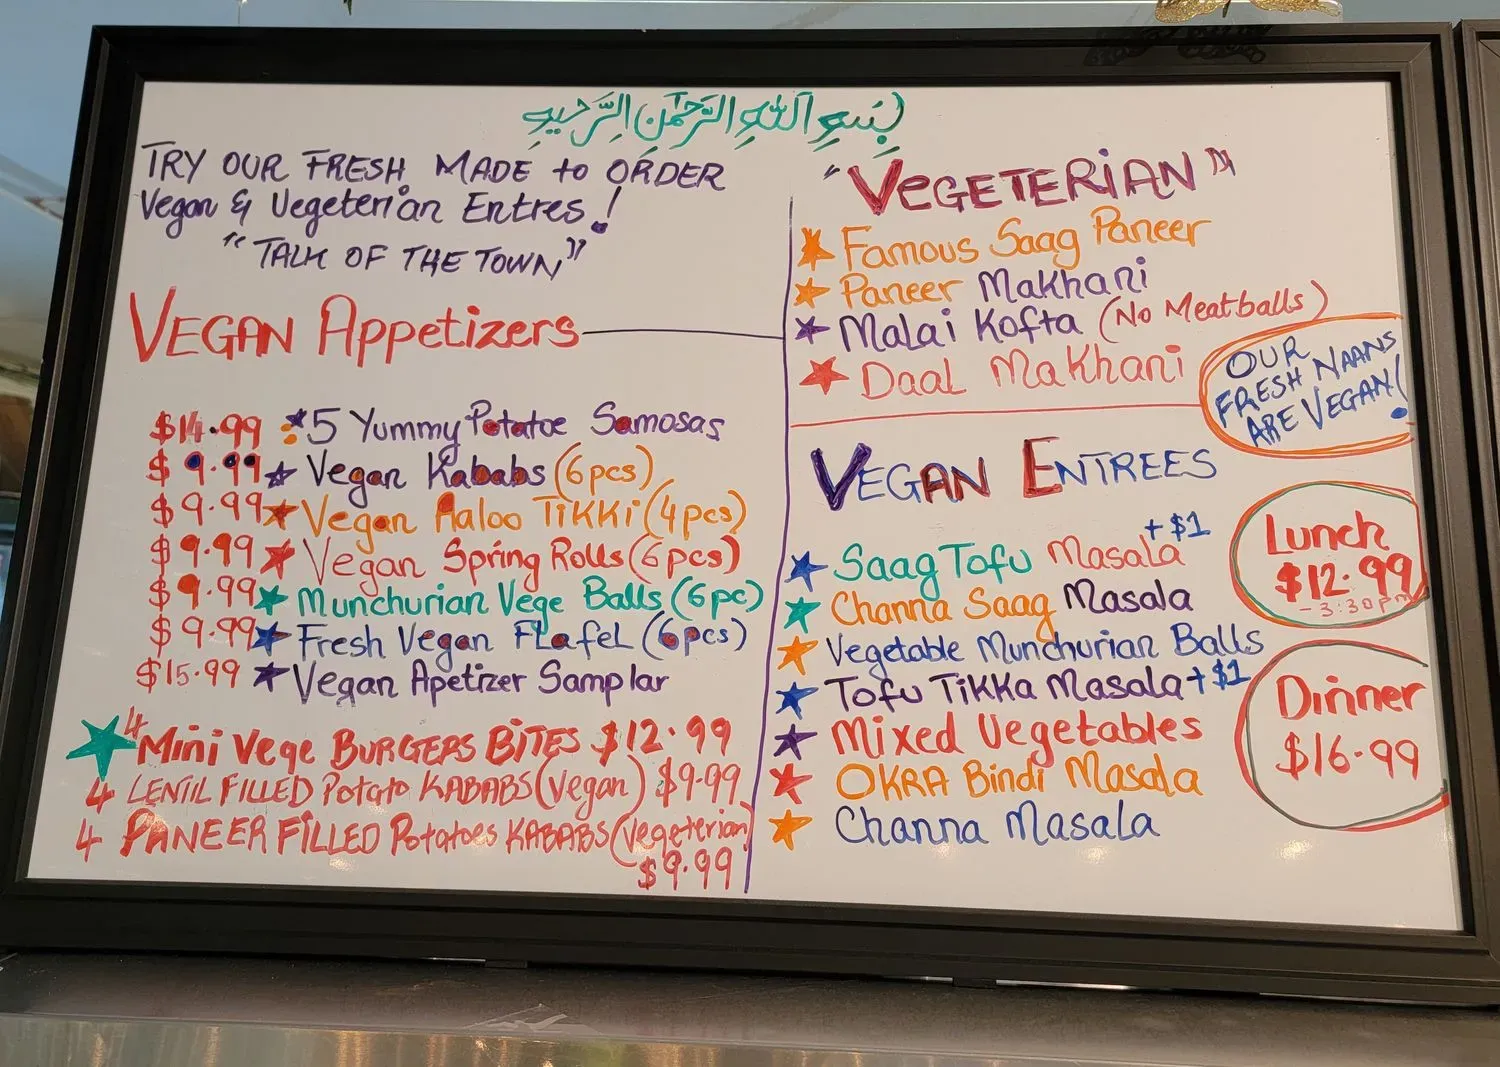 بِسْمِ ٱللَّهِ ٱلرَّحْمَٰنِ ٱلرَّحِيمِ
TRY OUR FRESH MADE to ORDER
Vegan & Vegeterian Entres!
"TALK OF THE TOWN"
VEGAN Appetizers
$14.99 5 Yummy Potatoe Samosas
$9.99 Vegan Kababs (6pcs)
$9.99 Vegan Aaloo TiKKi (4pcs)
$9.99 Vegan Spring Rolls (6pcs)
$9.99 Munchurian Vege Balls (6pc)
$9.99 Fresh Vegan FLafeL (6pcs)
$15.99 Vegan Apetizer Samplar
4 Mini Vege BURGERS BiTES $12.99
4 LENTIL FILLED Potato KABABS (Vegan) $9.99
4 PANEER FILLED Potatoes KABABS (Vegeterian)
$9.99
"VEGETERIAN"
Famous Saag Paneer
Paneer Makhani
Malai Kofta (No Meatballs)
Daal Makhani
OUR
FRESH NAANS
ARE VEGAN!
VEGAN ENTREES
+$1
Saag Tofu Masala
Channa Saag Masala
Vegetable Munchurian Balls
Tofu TiKKa Masala +$1
Mixed Vegetables
OKRA Bindi Masala
Channa Masala
Lunch
$12.99
-3:30pm
Dinner
$16.99